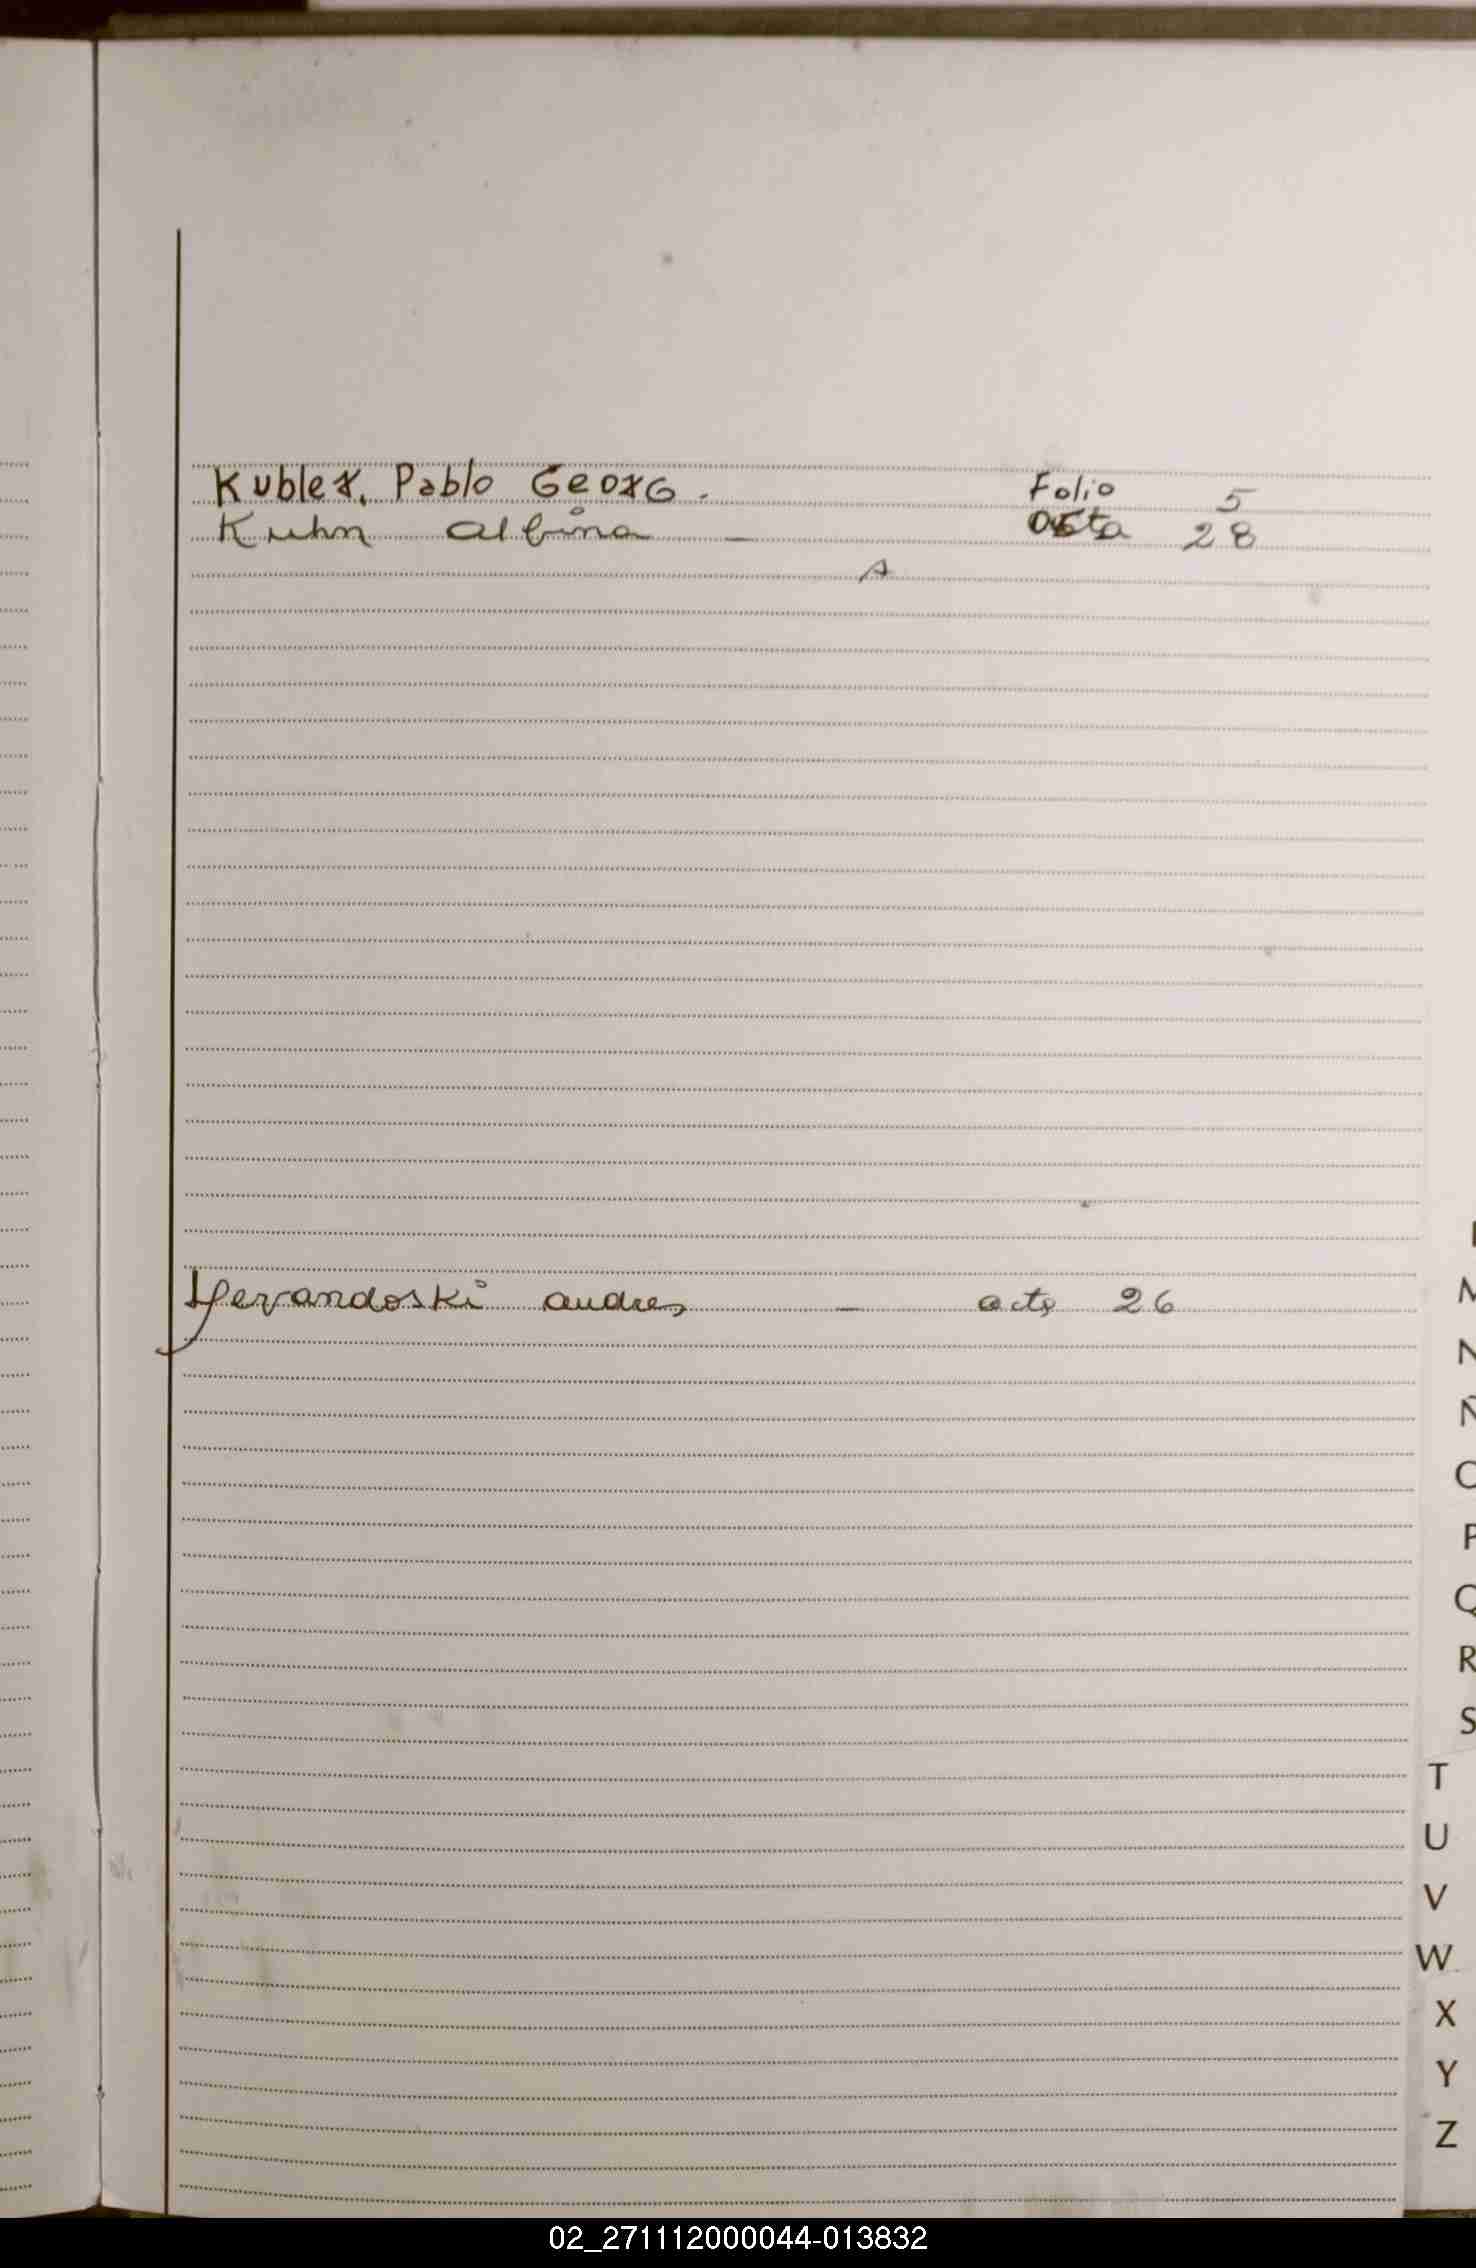 Kubler, Pablo Georg. Folio 5
Kuhn Albina — Acta 28
A
Yerandoski Andres — acta 26
M
N
Ñ
O
P
Q
R
S
T
U
V
W
X
Y
Z
02_271112000044-013832